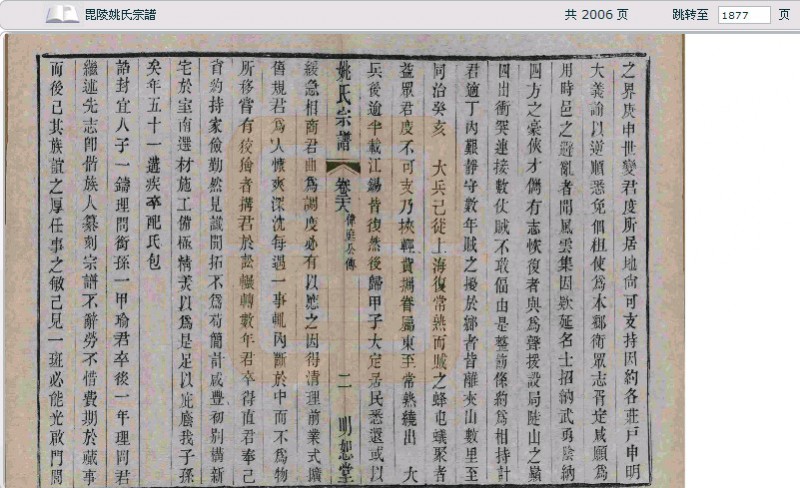 毘陵姚氏宗譜
共 2006 页
跳转至 1877 页
之界庚申世變君度所居地尙可支持因約各莊戶申明
大義諭以逆順悉免佃租使爲本鄉衛眾志胥定咸願爲
用時邑之避亂者聞風雲集因欵延名士招納武勇陰納
四方之豪俠才儁有志恢復者與爲聲援設局陡山之巔
圖出衝突連接數仗賊不敢偪由是整飭條約爲相持計
君適丁內艱靜守數年賊之擾於鄉者皆離夾山數里至
同治癸亥 大兵已從上海復常熟而賊之蜂屯蟻聚者
益眾君度不可支乃挾輕貲攜眷屬東至常熟繞出 大
兵後逾半載江錫皆復然後歸甲子大定居民悉還或以
姚氏宗譜 卷六 像庭公傳 二 明恕堂
緩急相商君曲爲調度必有以應之因得清理前業式擴
舊規君爲人慷爽深沈每遇一事輒內斷於中而不爲物
所移嘗有狡獪者搆君於訟輾轉數年君卒得直君奉己
省約持家儉勤然見識開拓不爲苟簡計咸豐初別構新
宅於室南選材施工備極精美以爲是足以庇廕我子孫
矣年五十一遘疾卒配氏包
誥封宜人子一鑄理問銜孫一甲瑜君卒後一年理問君
繼述先志卽偕族人纂刻宗譜不辭勞不惜費期於蕆事
而後已其族誼之厚任事之敏已見一班必能光啟門閭